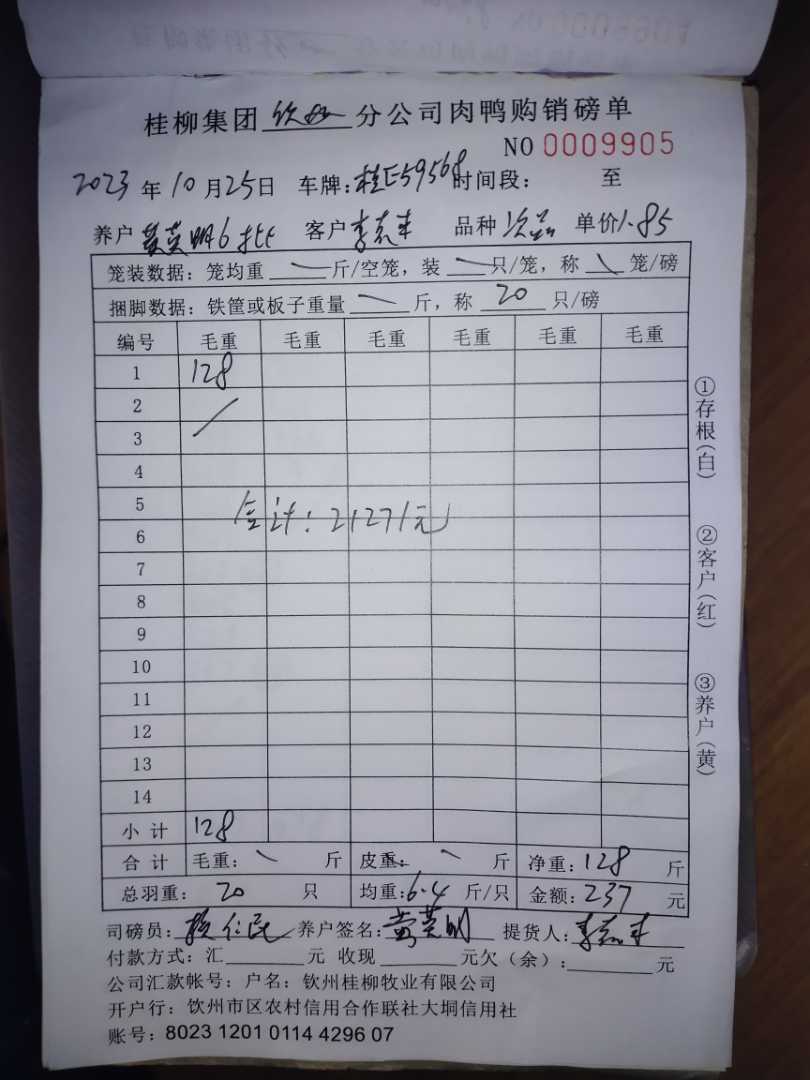 桂柳集团 钦州 分公司肉鸭购销磅单
NO 0009905
2023 年 10 月 25 日 车牌: 桂E59568 时间段: 至
养户 黄英明6批 客户 李志丰 品种 次品 单价 1.85
笼装数据: 笼均重 斤/空笼, 装 只/笼, 称 笼/磅
捆脚数据: 铁筐或板子重量 斤, 称 20 只/磅
编号 毛重 毛重 毛重 毛重 毛重 毛重
1 128
2
3
4
5
合计: 21271元
6
7
8
9
10
11
12
13
14
小 计 128
合 计 毛重: 斤 皮重: 斤 净重: 128 斤
总羽重: 20 只 均重: 6.4 斤/只 金额: 237 元
司磅员: 仁民 养户签名: 黄英明 提货人: 李志丰
付款方式: 汇 元 收现 元欠(余): 元
公司汇款帐号: 户名: 钦州桂柳牧业有限公司
开户行: 饮州市区农村信用合作联社大垌信用社
账号: 8023 1201 0114 4296 07
①存根(白)
②客户(红)
③养户(黄)